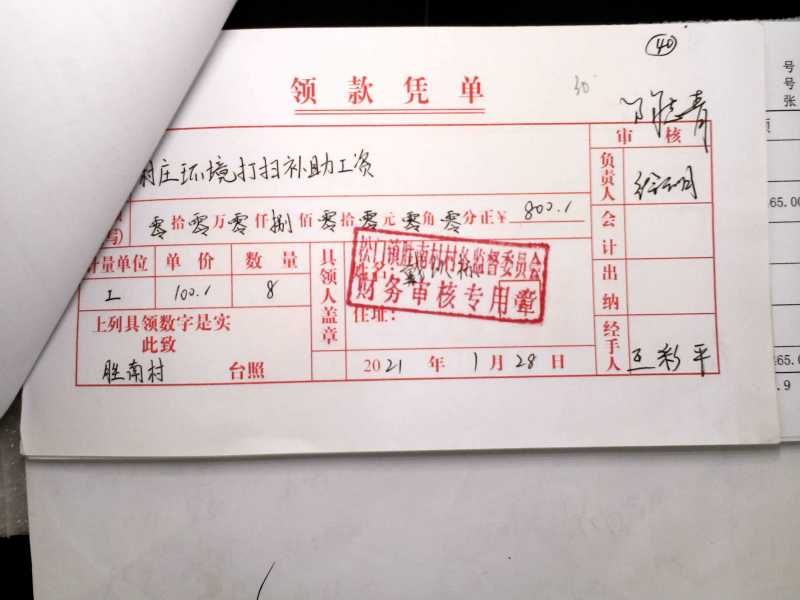 40
领款凭单
30
审核
村庄环境打扫补助工资
负责人
零拾零万零仟捌佰零拾零元零角零分正¥ 800.-
会计
计量单位 单价 数量
工 100.- 8
具领人盖章
松门镇胜南村村务监督委员会
财务审核专用章
住址:
出纳
上列具领数字是实
此致
胜南村 台照
2021年1月28日
经手人
王彩平
号
号
张
65.00
465.0
.9